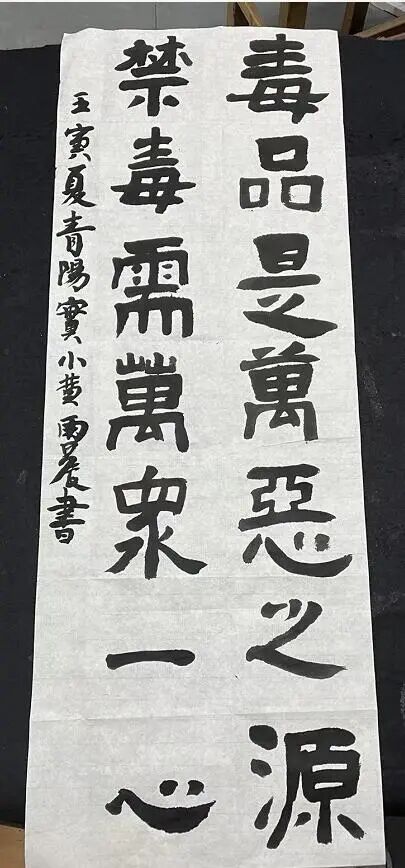 毒品是萬惡之源
禁毒需萬眾一心
壬寅夏青陽實小黄雨晨書